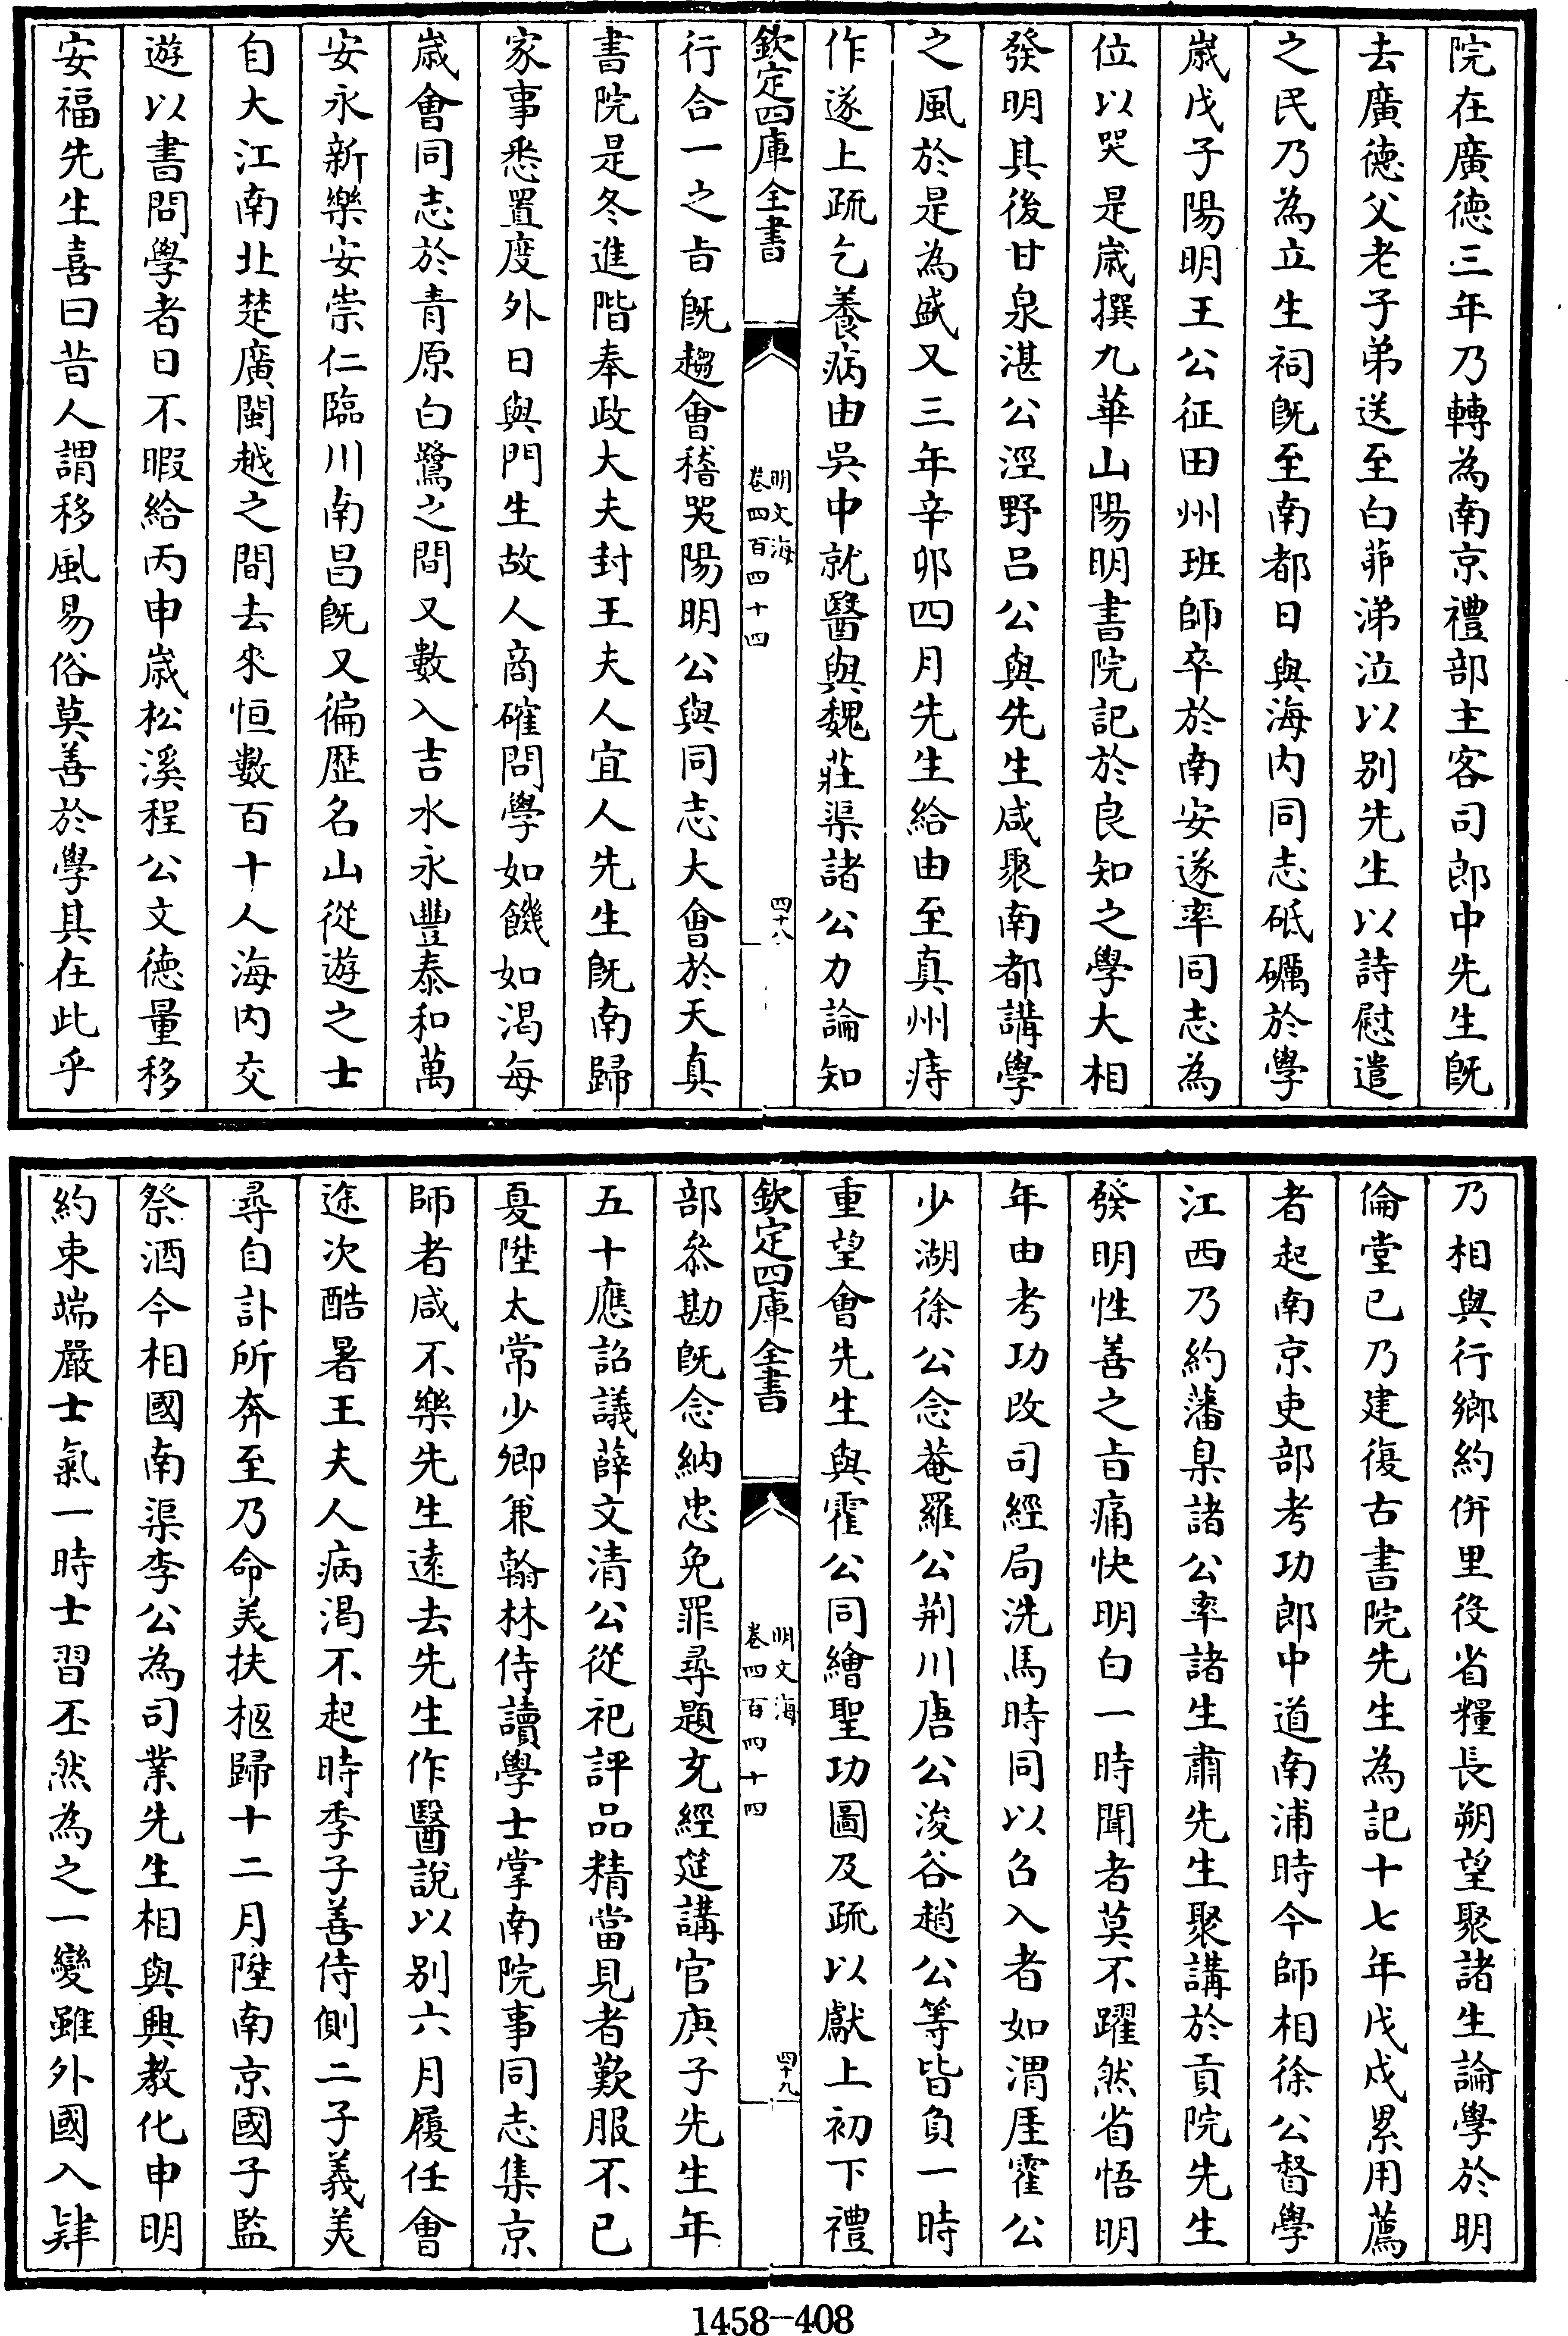 院在廣徳三年乃轉為南京禮部主客司郎中先生既
去廣徳父老子弟送至白茆涕泣以别先生以詩慰遣
之民乃為立生祠既至南都日與海内同志砥礪於學
歳戊子陽明王公征田州班師卒於南安遂率同志為
位以哭是嵗撰九華山陽明書院記於良知之學大相
發明其後甘泉湛公涇野吕公與先生咸聚南都講學
之風於是為盛又三年辛卯四月先生給由至真州痔
作遂上疏乞養病由吳中就醫與魏莊渠諸公力論知
欽定四庫全書
明文海
卷四百四十四
四十八
行合一之㫖既趨會稽哭陽明公與同志大會於天真
書院是冬進階奉政大夫封王夫人宜人先生既南歸
家事悉置度外日與門生故人商確問學如饑如渴每
歳會同志於青原白鷺之間又數入吉水永豐泰和萬
安永新樂安崇仁臨川南昌既又徧歴名山從遊之士
自大江南北楚廣閩越之間去來恒數百十人海内交
遊以書問學者日不暇給丙申歳松溪程公文徳量移
安福先生喜曰昔人謂移風易俗莫善於學其在此乎
乃相與行鄉約併里役省糧長朔望聚諸生論學於明
倫堂已乃建復古書院先生為記十七年戊戍累用薦
者起南京吏部考功郎中道南浦時今師相徐公督學
江西乃約藩臬諸公率諸生肅先生聚講於貢院先生
發明性善之㫖痛快明白一時聞者莫不躍然省悟明
年由考功改司經局洗馬時同以召入者如渭厓霍公
少湖徐公念菴羅公荆川唐公浚谷趙公等皆負一時
重望會先生與霍公同繪聖功圖及疏以獻上初下禮
欽定四庫全書
明文海
卷四百四十四
四十九
部叅勘既念納忠免罪尋題充經筵講官庚子先生年
五十應詔議薛文清公從祀評品精當見者歎服不已
夏陞太常少卿兼翰林侍讀學士掌南院事同志集京
師者咸不樂先生逺去先生作醫説以别六月履任會
途次酷暑王夫人病渴不起時季子善侍側二子義美
尋自訃所奔至乃命美扶柩歸十二月陞南京國子監
祭酒今相國南渠李公為司業先生相與興教化申明
約束端嚴士氣一時士習丕然為之一變雖外國入肄
1458-408